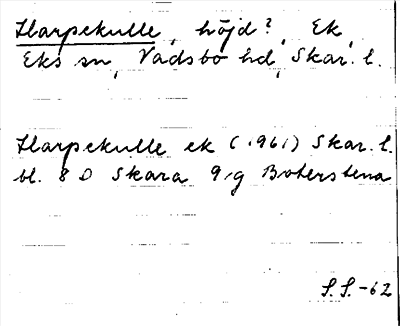 Harpekulle, höjd?, Ek,
Eks sn, Vadsbo hd, Skar. l.
Harpekulle ek (1961) Skar. l.
bl. 8 D Skara 9 g Boterstena
S.S.-62